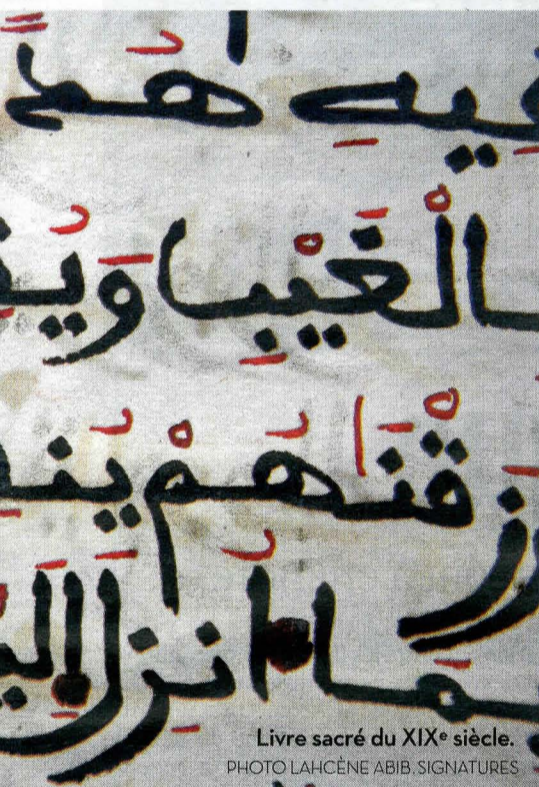 فِيهِ هُدًى
الْغَيْبِ وَيُ
رَزَقْنَٰهُمْ يُن
مَا أُنزِلَ إِلَ
Livre sacré du XIXe siècle.
PHOTO LAHCÈNE ABIB. SIGNATURES